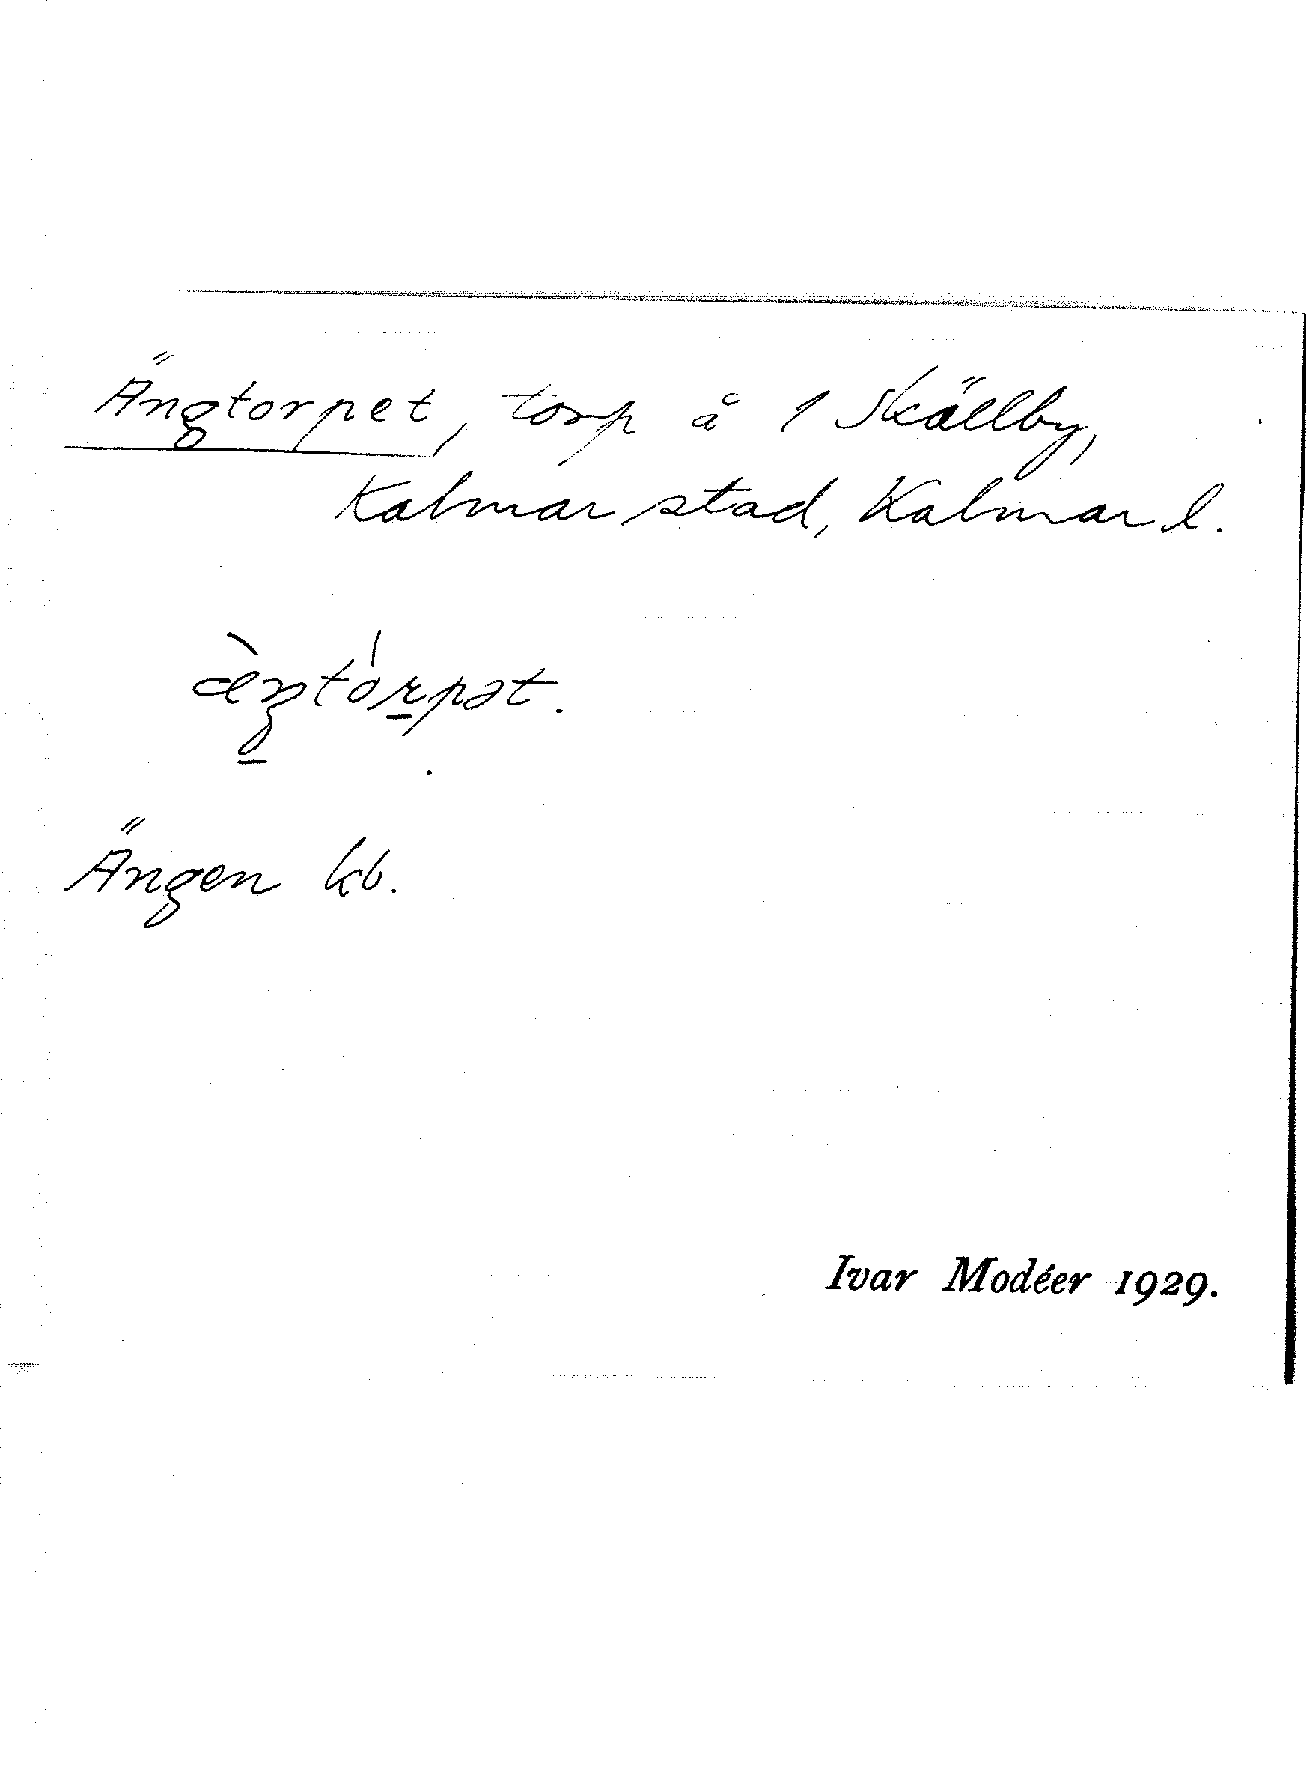 Ängtorpet, torp å 1 Skällby,
Kalmar stad, Kalmar l.
æ̀ŋtórpət.
Ängen kb.
Ivar Modéer 1929.